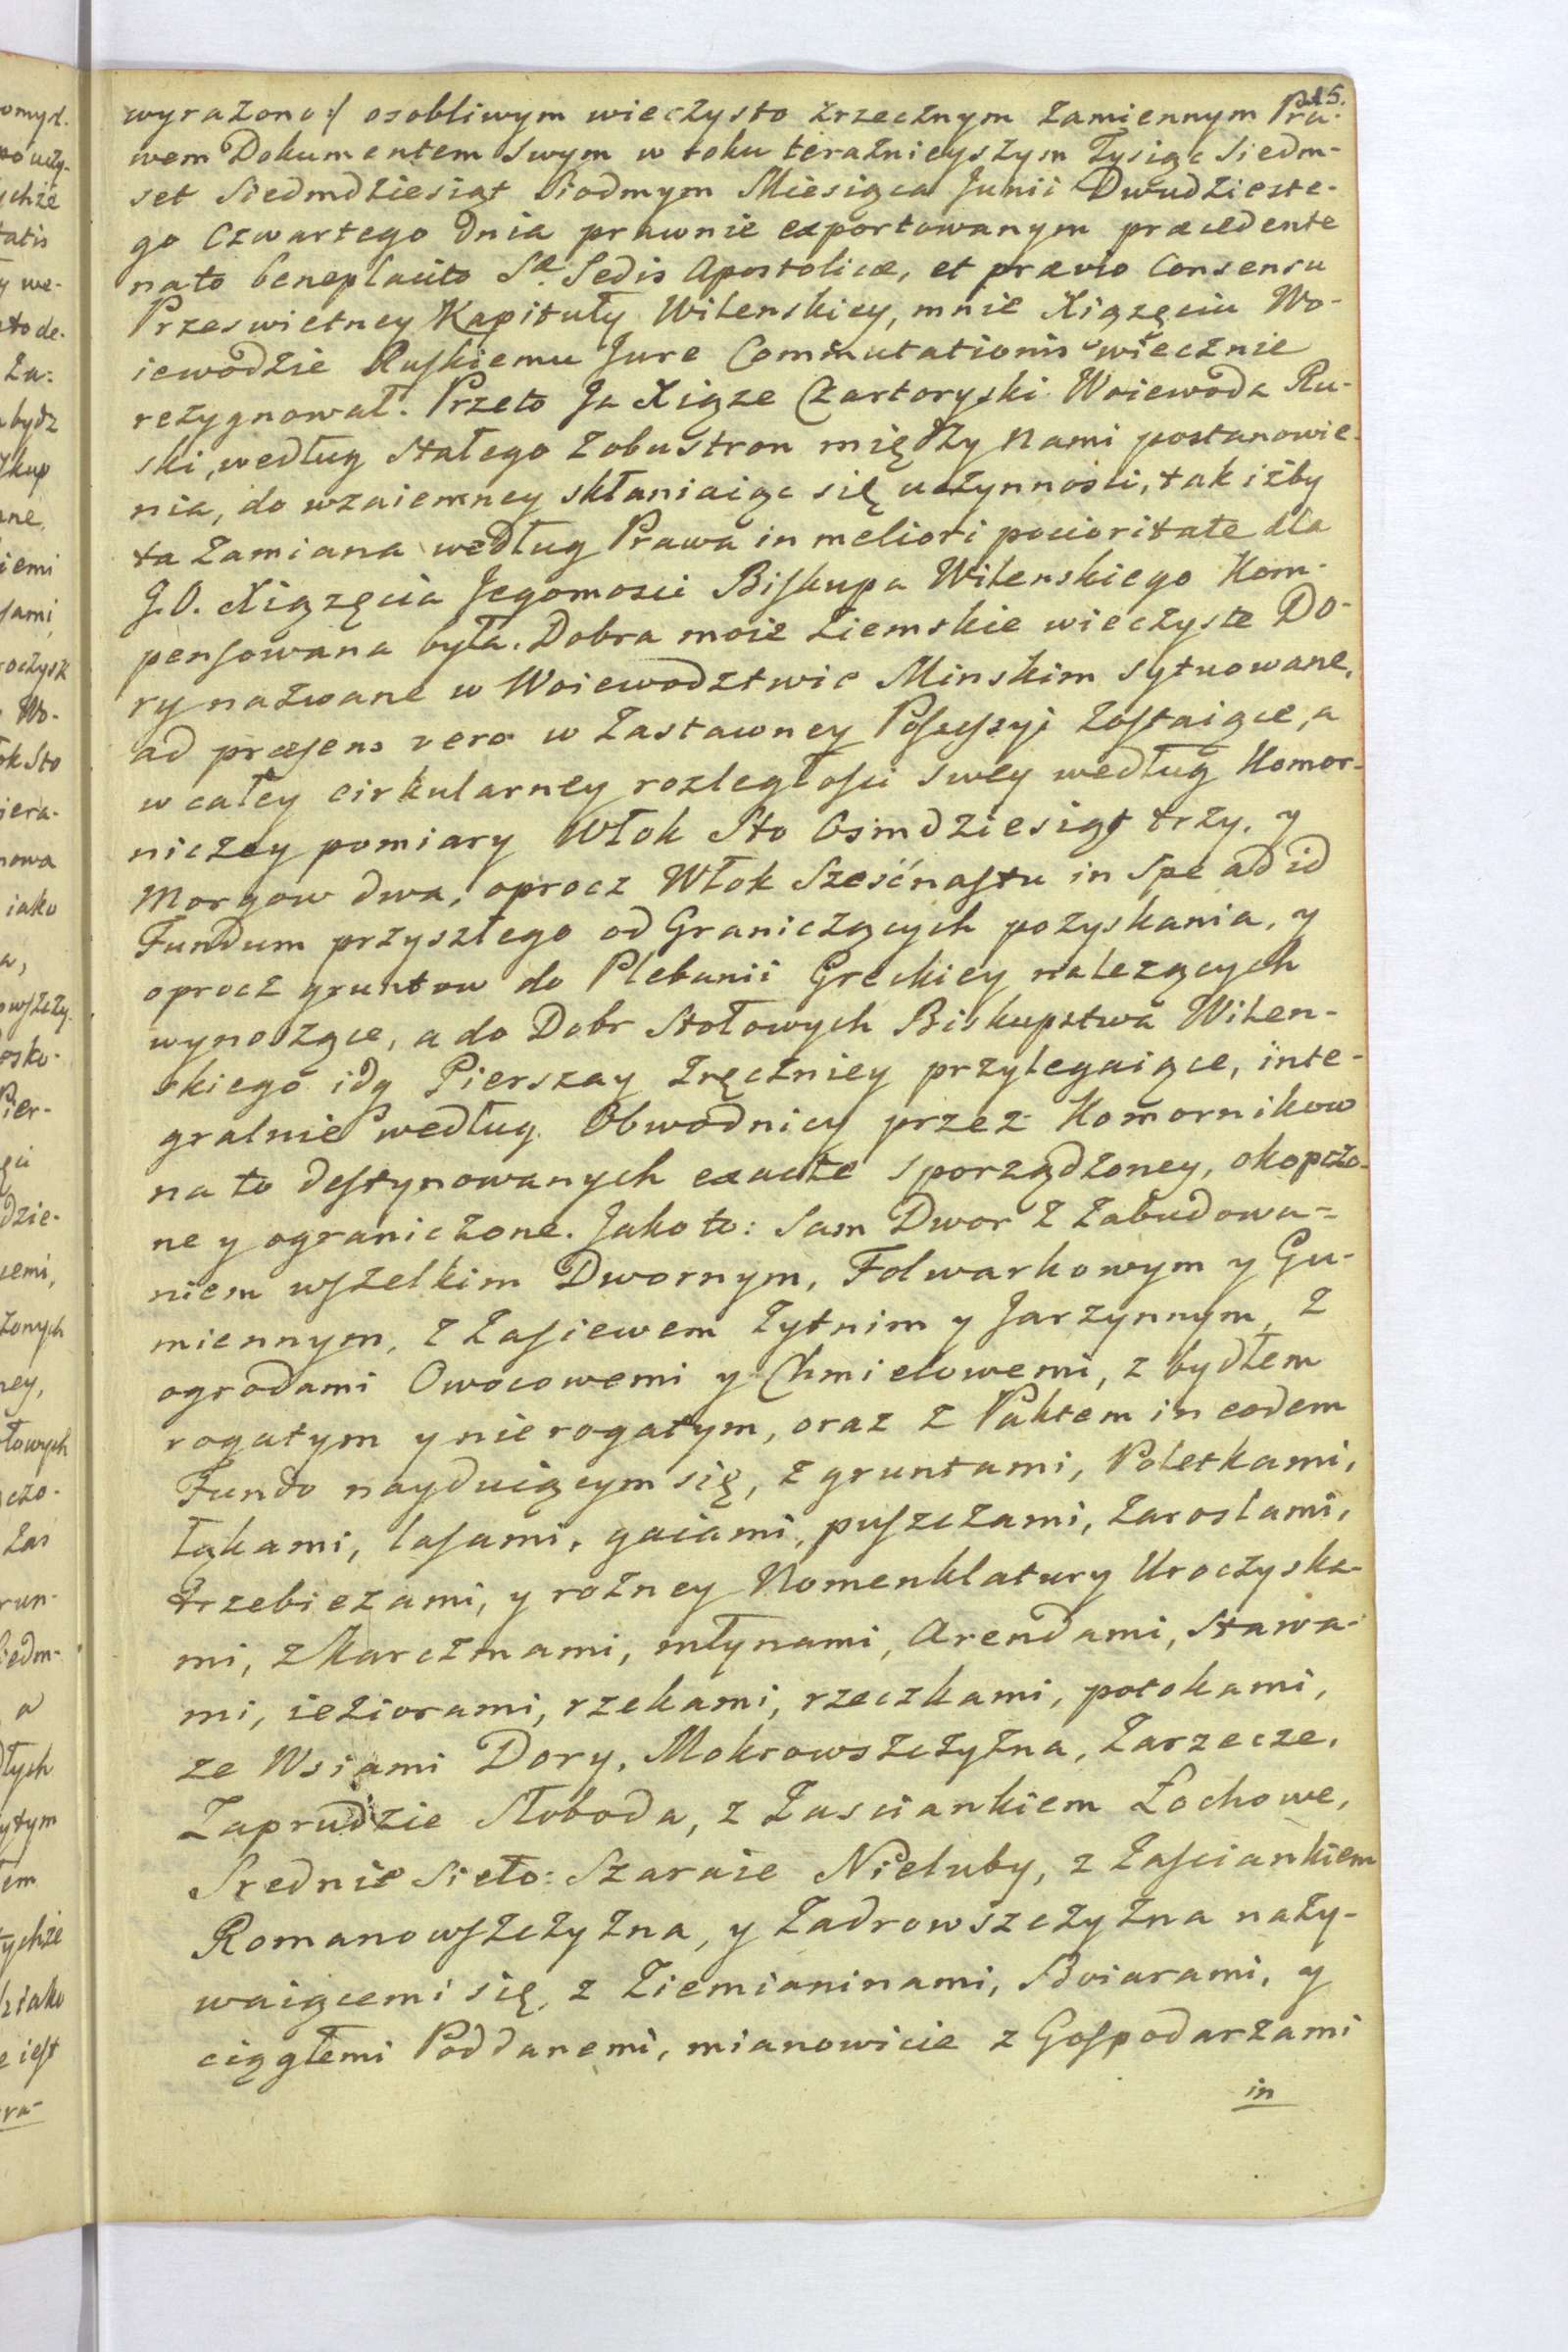 15.
wyrażono:/ osobliwym wieczysto zrzecznym Zamiennym Pra-
wem Dokumentem swym w roku teraznieyszym Tysiąc Siedm-
set Siedmdziesiąt Siodmym Miesiąca Junii Dwudzieste-
go Czwartego dnia prawnie exportowanym præcedente
na to beneplacito Sæ Sedis Apostolicæ, et prævio Consensu
Przeswietney Kapituły Wilenskiey, mnie Xiązęciu Wo-
iewodzie Ruskiemu Jure Commutationis wiecznie
rezygnował. Przeto Ja Xiąze Czartoryski Woiewoda Ru-
ski, według Stałego Zobustron między Nami postanowie-
nia, do wzaiemney skłaniaiąc się uczynności, tak iżby
ta Zamiana według Prawa in meliori pocioritate dla
J.O. Xiązęcia Jegomosci Biskupa Wilenskiego Kom-
pensowana była. Dobra moie Ziemskie wieczyste Do-
ry nazwane w Woiewodztwie Minskim sytuowane,
ad præsens vero w Zastawney Possessyi Zostaiące, a
w całey cirkularney rozległosci swey według Komor-
niczey pomiary Włok Sto Osmdziesiąt trzy, y
Morgow dwa, oprocz Włok Szesćnastu in Spe ad id
Fundum przyszłego od Graniczących pozyskania, y
oprocz gruntow do Plebanii Greckiey nalezących
wynoszące, a do Dobr Stołowych Biskupstwa Wilen-
skiego idą Pierszay Zręczniey przylegaiące, inte-
gralnie według Obwodnicy przez Komornikow
na to destynowanych exacte sporządzoney, okopczo-
ne y ograniczone. Jako to: Sam Dwor z Zabudowa-
niem wszelkim Dwornym, Folwarkowym y Gu-
miennym, z Zasiewem Zytnim y Jarzynnym, z
ogrodami Owocowemi y Chmielowemi, z bydłem
rogatym y nierogatym, oraz z Paktem in eodem
Fundo nayduiącym się, z gruntami, Poletkami,
łąkami, lasami, gaiami, puszczami, Zaroslami,
trzebiezami, y rożney Nomenklatury Uroczyska-
mi, z Karczmami, młynami, Arendami, Stawa-
mi, ieziorami, rzekami, rzeczkami, potokami,
ze Wsiami Dory, Mokrowszczyzna, Zarzecze,
Zaprudzie Słoboda, z Zasciankiem Łochowe,
Srednie Sieło: Szaraie Nieluby, z Zasciankiem
Romanowszczyzna, y Zadrowszczyzna nazy-
waiącemi się, z Ziemianinami, Boiarami, y
ciągłemi Poddanemi, mianowicie z Gospodarzami
in